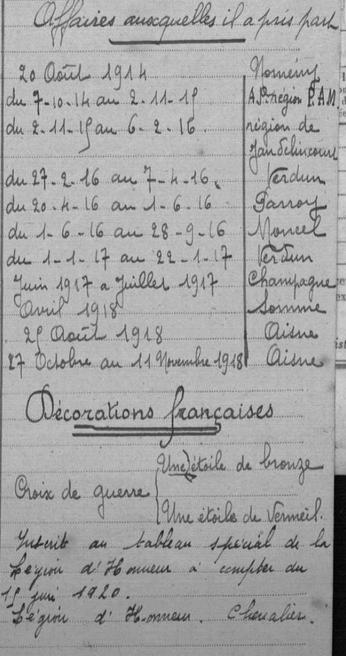 Affaires auxquelles il a pris part
20 Août 1914 Nomény
du 7-10-14 au 2-11-15 région P.A.M.
du 2-11-15 au 6-2-16. région de
Jandelincourt
du 27-2-16 au 7-4-16. Verdun
du 20-4-16 au 1-6-16 Parroy
du 1-6-16 au 28-9-16 Moncel
du 1-1-17 au 22-1-17 Verdun
Juin 1917 à Juillet 1917 Champagne
Avril 1918 Somme
25 Août 1918 Aisne
27 Octobre au 11 Novembre 1918 Aisne
Décorations françaises
Une étoile de bronze
Croix de guerre
Une étoile de Vermeil.
Inscrit au tableau spécial de la
Légion d'Honneur à compter du
15 juin 1920.
Légion d'Honneur. Chevalier.